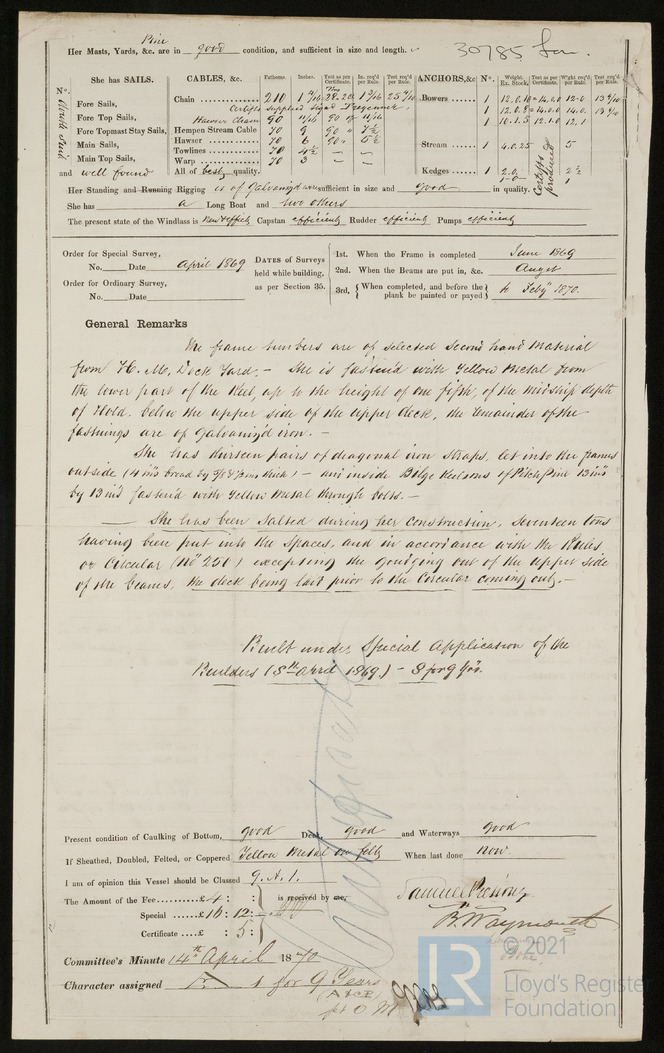 Pine
Her Masts, Yards, &c. are in good condition, and sufficient in size and length.
30785
N.º She has SAILS. CABLES, &c. Fathoms. Inches. Test as per Certificate. In. req'd per Rule. Test req'd per Rule. ANCHORS, &c. Nº. Weight. Ex. Stock. Test as per Certificate. W'ght req'd per Rule. Test req'd per Rule.
Fore Sails, Chain 210 Bowers 1
Fore Top Sails, Hawser Chain 90 11/16 11/16 1
Fore Topmast Stay Sails, Hempen Stream Cable 70 9 90 7½ 1 10.1.5 12.1.0 12.1
Main Sails, Hawser 70 6 5½ Stream 1 4.0.25 5
Main Top Sails, Towlines 70 4½ — —
and well found Warp 70 3 — — Kedges 1 2.0. 2½
All of best quality. 1 1-0 1
Certifs produced
Her Standing and Running Rigging is of Galvaniz'd wire sufficient in size and good in quality.
She has a Long Boat and two others
The present state of the Windlass is New & effict Capstan efficient Rudder efficient Pumps efficient
Order for Special Survey,
No. Date April 1869
Order for Ordinary Survey,
No. Date
DATES of Surveys
held while building,
as per Section 35.
1st. When the Frame is completed June 1869
2nd. When the Beams are put in, &c. Augst
3rd. When completed, and before the plank be painted or payed to Feby 1870.
General Remarks
The frame timbers are of selected second hand Material
from H. M. Dock Yard. – She is fasten'd with Yellow Metal from
the lower part of the Keel, up to the height of one fifth, of the midship depth
of Hold, below the upper side of the upper deck, the remainder of the
fastnings are of Galvaniz'd iron. –
She has thirteen pairs of diagonal iron straps, let into the frames
outside (4 ins broad by thick) – and inside Bilge Keelsons of Pitch Pine 13 ins
by 13 ins fasten'd with Yellow Metal through bolts. –
– She has been Salted during her construction, seventeen tons
having been put into the spaces, and in accordance with the Rules
or Circular (No 250) excepting the gouging out of the upper side
of the beams, the deck being laid prior to the Circular coming out. –
Built under Special Application of the
Builders (8th April 1869) – 8 for 9 Yrs.
Present condition of Caulking of Bottom, good Deck, good and Waterways good
If Sheathed, Doubled, Felted, or Coppered Yellow Metal on felt When last done now.
I am of opinion this Vessel should be Classed 9. A. 1.
The Amount of the Fee £ 4 : : is received by me,
Special £ 16 : 12 :
Certificate £ : 5 :
B. Waymouth
Committee's Minute 14th April 1870
Character assigned A 1 for 9 Years
© 2021
LR
Lloyd's Register
Foundation